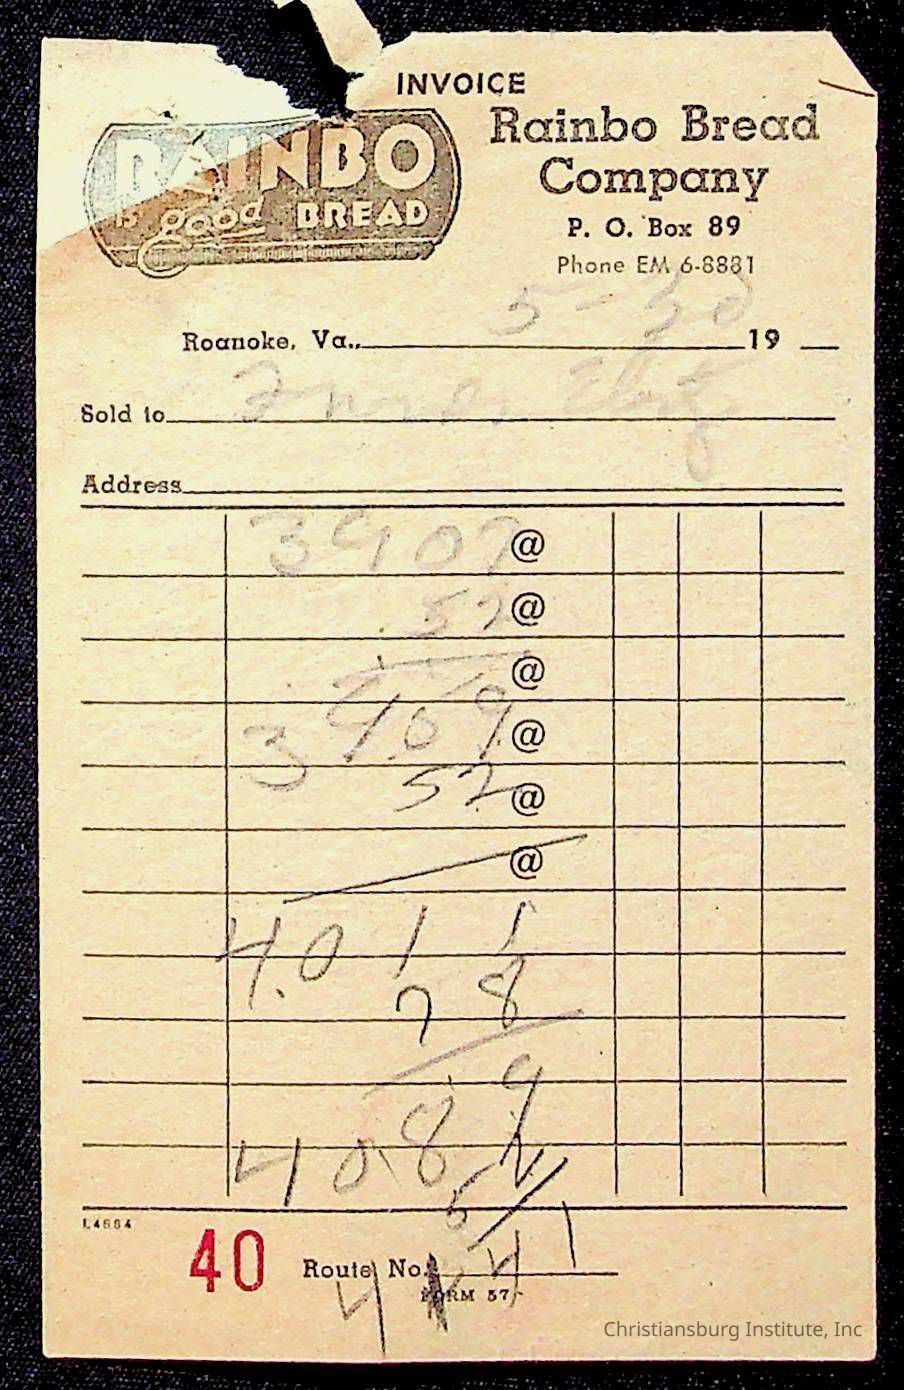 INVOICE
RAINBO
is good BREAD
Rainbo Bread
Company
P. O. Box 89
Phone EM 6-8881
5-30
Roanoke, Va., 19
Sold to
Address
3907 @
52 @
@
3 9.59 @
52 @
@
4.011
78
4089
5
L4664
40 Route No. 41
FORM 57
Christiansburg Institute, Inc